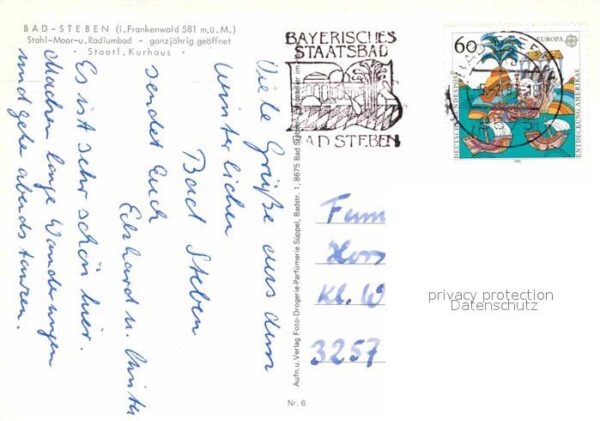 BAD-STEBEN (i. Frankenwald 581 m.ü.M.)
Stahl-Moor-u. Radiumbad - ganzjährig geöffnet
· Staatl. Kurhaus ·
Viele Grüße aus dem
winterlichen
Bad Steben
sendet Euch
Eckhard u. Christa
Es ist sehr schön hier.
Machen lange Wanderungen
und gehe abends tanzen.
BAYERISCHES
STAATSBAD
BAD STEBEN
60
EUROPA
DEUTSCHE BUNDESPOST
ENTDECKUNG AMERIKAS
Aufn. u. Verlag Foto-Drogerie-Parfümerie Süppel, Badstr. 1, 8675 Bad Steben
Fam
Horr
Kl. W
3257
privacy protection
Datenschutz
Nr. 6